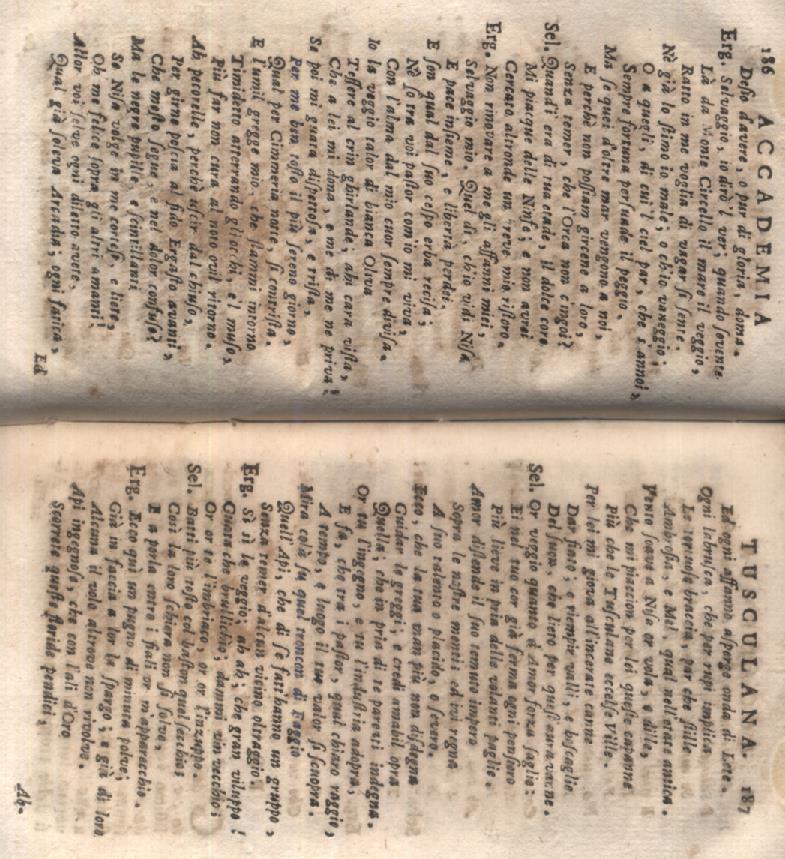 186 ACCADEMIA
Desio d'avere, o pur di gloria, doma.
Erg. Selvaggio, io dirò'l ver; quando sovente
Là da Monte Circello il mare il veggio,
Ratto in me voglia di vagar si sente.
Nè già lo stimo io male; o ch'io vaneggio;
O a quegli, di cui'l ciel par, che s'annoi,
Sempre fortuna persuade il peggio.
Ma se quei d'oltre mar vengono a noi,
E perchè non possiam gircene a loro,
Senza temer, che l'Orca non c'ingoi?
Sel. Quand'i' era di tua etade, il dolce coro
Mi piacque delle Ninfe; e non avrei
Cercato altronde un breve mio ristoro.
Erg. Non rinovare a me gli affanni miei,
Selvaggio mio. Quel dì, ch'io vidi Nisa
E pace insieme, e libertà perdei.
E son qual dal suo cespo erba recisa;
Nè so tra voi pastor com'io mi viva,
Con l'alma dal mio cuor sempre divisa.
Io la veggio talor di bianca Oliva
Tessere al crin ghirlande; ahi cara vista,
Che a lei mi dona, e me di me ne priva!
Se poi mi guata dispettosa, e trista,
Per me ben tosto il più sereno giorno,
Qual per Cimmeria notte, si contrista.
E l'umil gregge mio, che stammi intorno
Timidetto atterrando gli occhi, e'l muso,
Più far non cura al noto ovil ritorno.
Ah pecorelle, perchè uscir dal chiuso,
Per girne poscia al fido Ergasto avanti,
Che mesto segue, e nel dolor confuso?
Ma le negre pupille, e scintillanti
Se Nisa volge in me cortese, e liete,
Oh me felice sopra gli altri amanti!
Allor voi selve ogni diletto avete,
Qual già soleva Arcadia; ogni fatica,
Ed
TUSCULANA. 187
Ed ogni affanno asperge onda di Lete.
Ogni labrusca, che per rupi implica
Le torinose braccia, par che stille
Ambrosia, e Mel, qual nell'etate antica.
Vento soava a Nisa or vola, e dille,
Che mi piaccion per lei queste capanne
Più che le Tusculane eccelse Ville.
Per lei mi giova all'incerate canne
Dar fiato; e riempir valli, e boscaglie
Del suon, che lieto per quest'aura vanne.
Sel. Or veggio quanto d'Amor forza saglia:
Ei nel tuo cor già ferma ogni pensiero
Più lieve in pria delle volanti paglie.
Amor distende il suo temuto impero
Sopra le nostre menti, ed ivi regna
A suo talento o placido, o severo.
Ecco, che la tua man più non disdegna
Guidar le greggi; e credi amabil opra
Quella, che in pria di te parevi indegna.
Or tu l'ingegno, e tu l'industria adopra,
E fa, che tra i pastor, qual chiaro raggio,
A tempo, e luogo il tuo valor si scuopra.
Mira colà su quel troncon di Faggio
Quell'Api, che di se fatt'hanno un gruppo,
Senza temer d'alcun vicino oltraggio.
Erg. Sì sì le veggio; ah ah, che gran viluppo!
Guata che brulichio; dammi vin vecchio:
Or or te l'imbriaco, or or l'inzuppo.
Sel. Batti più tosto col baston quel secchio:
Così la loro schiera non si solve,
E a porla entro i fiali or m'apparecchio.
Erg. Ecco qui un pugno di minuta polve;
Già in faccia a lor la spargo; e già di loro
Alcuna il volo altrove non rivolve.
Api ingegnose, che con l'ali d'Oro
Scorrete queste floride pendici,
Ab-